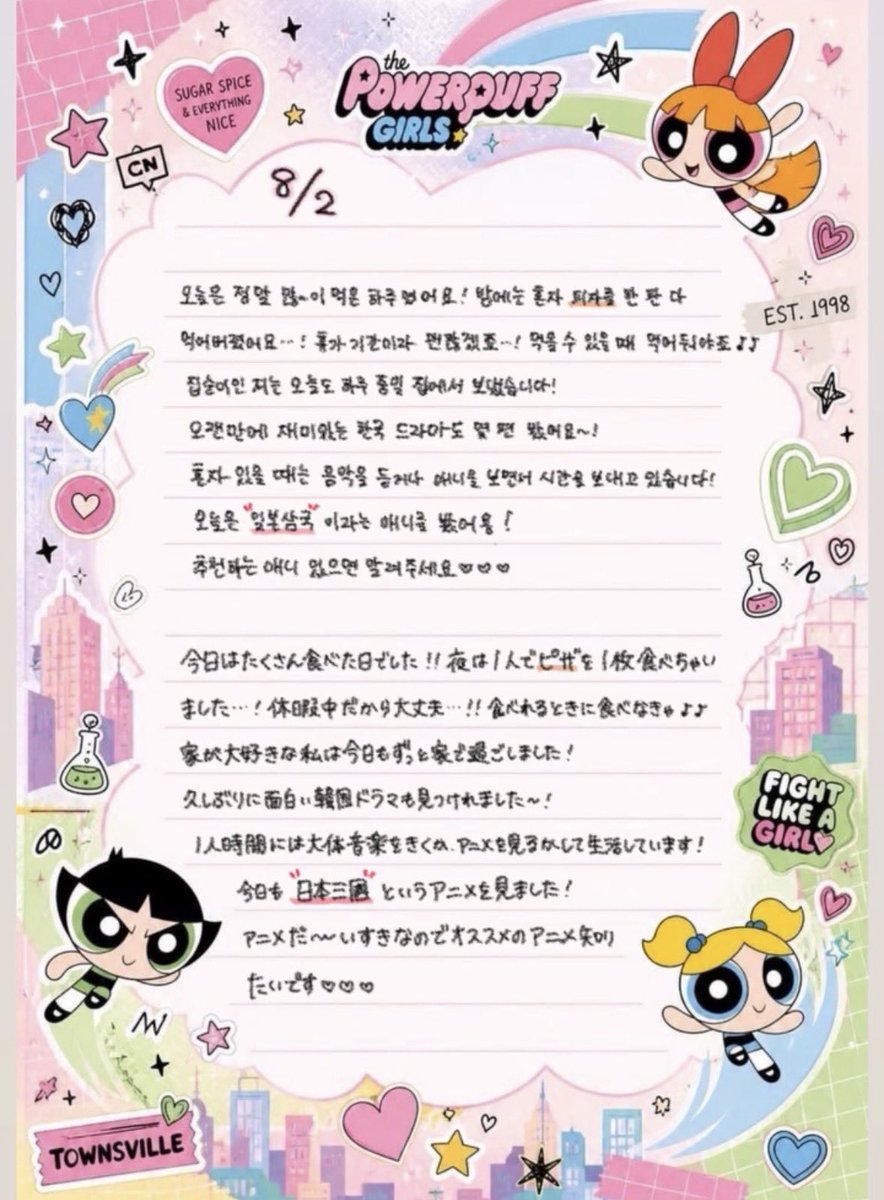 the
POWERPUFF
GIRLS
SUGAR SPICE
& EVERYTHING
NICE
CN
8/2
EST. 1998
오늘은 정말 많~이 먹은 하루였어요! 밤에는 혼자 피자를 한 판 다
먹어버렸어요…! 휴가 기간이라 괜찮겠죠…! 먹을 수 있을 때 먹어둬야죠♪♪
집순이인 저는 오늘도 하루 종일 집에서 보냈습니다!
오랜만에 재미있는 한국 드라마도 몇 편 봤어요~!
혼자 있을 때는 음악을 듣거나 애니를 보면서 시간을 보내고 있습니다!
오늘은 "일본삼국" 이라는 애니를 봤어용!
추천하는 애니 있으면 알려주세요♡♡♡
今日はたくさん食べた日でした!! 夜は1人でピザを1枚食べちゃい
ました…! 休暇中だから大丈夫…!! 食べれるときに食べなきゃ♪♪
家が大好きな私は今日もずっと家で過ごしました!
久しぶりに面白い韓国ドラマも見つけれました~!
1人時間には大体音楽をきくか、アニメを見るかして生活しています!
今日も "日本三國" というアニメを見ました!
アニメだ〜〜いすきなのでオススメのアニメ知り
たいです♡♡♡
FIGHT
LIKE A
GIRL
TOWNSVILLE